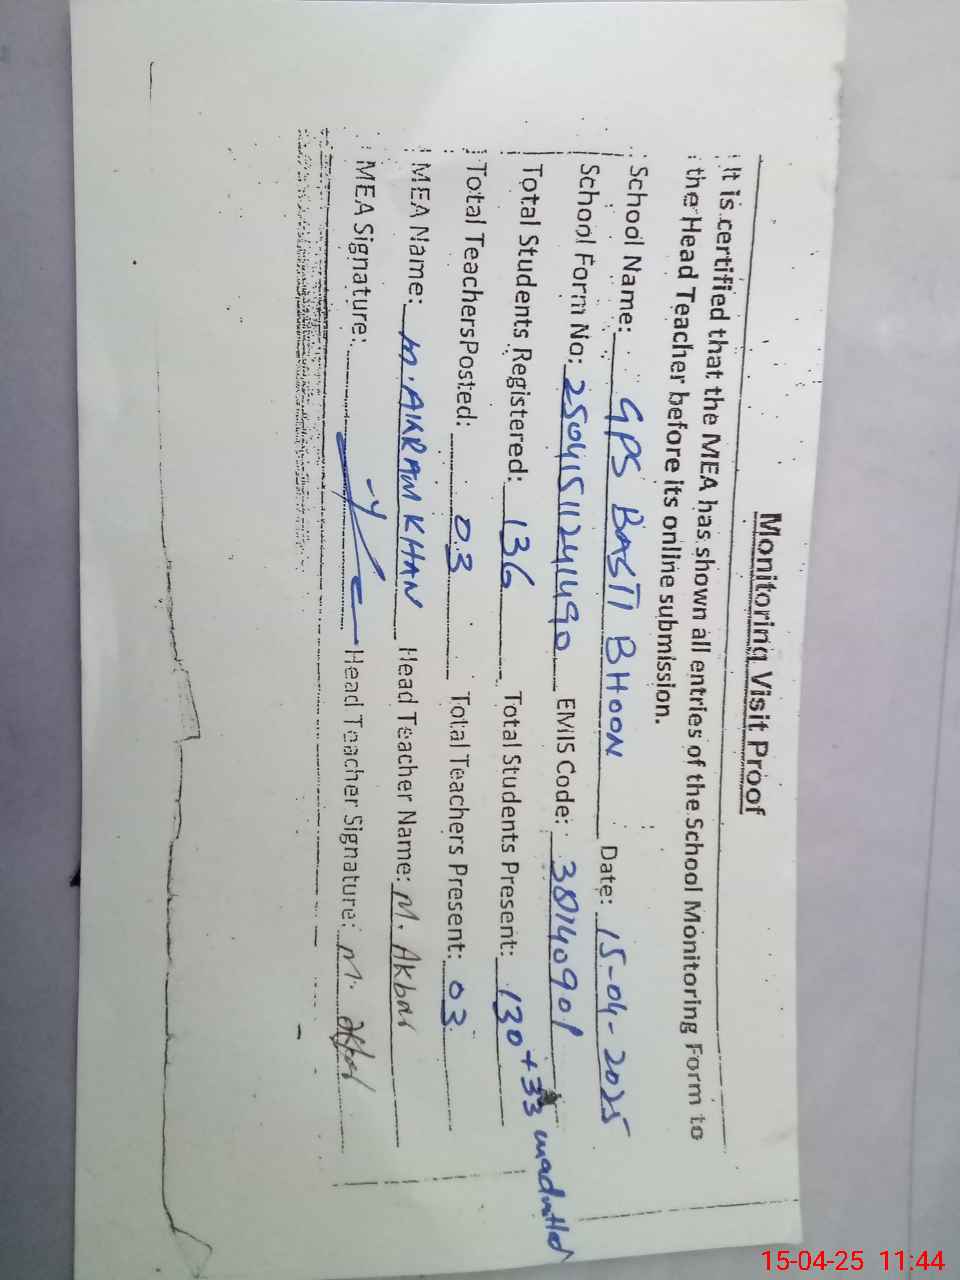 Monitoring Visit Proof
It is certified that the MEA has shown all entries of the School Monitoring Form to
the Head Teacher before its online submission.
School Name: GPS BASTI BHOON Date: 15-04-2025
School Form No: 25041511241490 EMIS Code: 38140901
Total Students Registered: 136 Total Students Present: 130+33 unadmitted
Total TeachersPosted: 03 Total Teachers Present: 03
MEA Name: M.AKRAM KHAN Head Teacher Name: M. Akbar
MEA Signature: Head Teacher Signature: M. Akbar
15-04-25 11:44